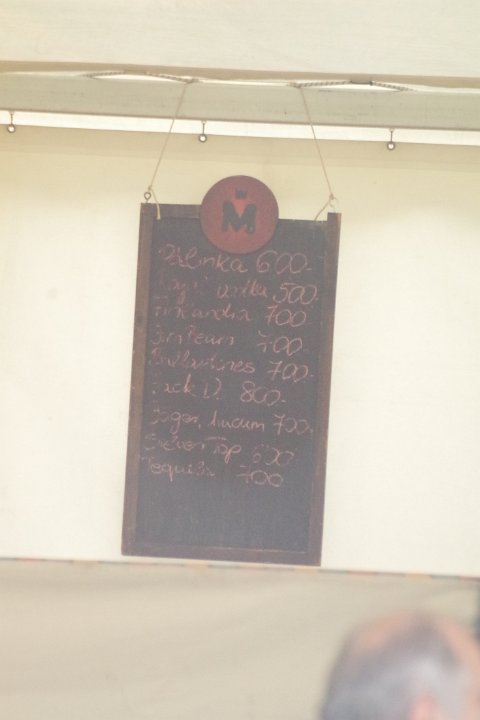 M
Pálinka 600.-
Royal vodka 500.-
Finlandia 700
Jim Beam 700.-
Ballantines 700.-
Jack D. 800.-
Jager, Unicum 700.-
600
Tequila 700